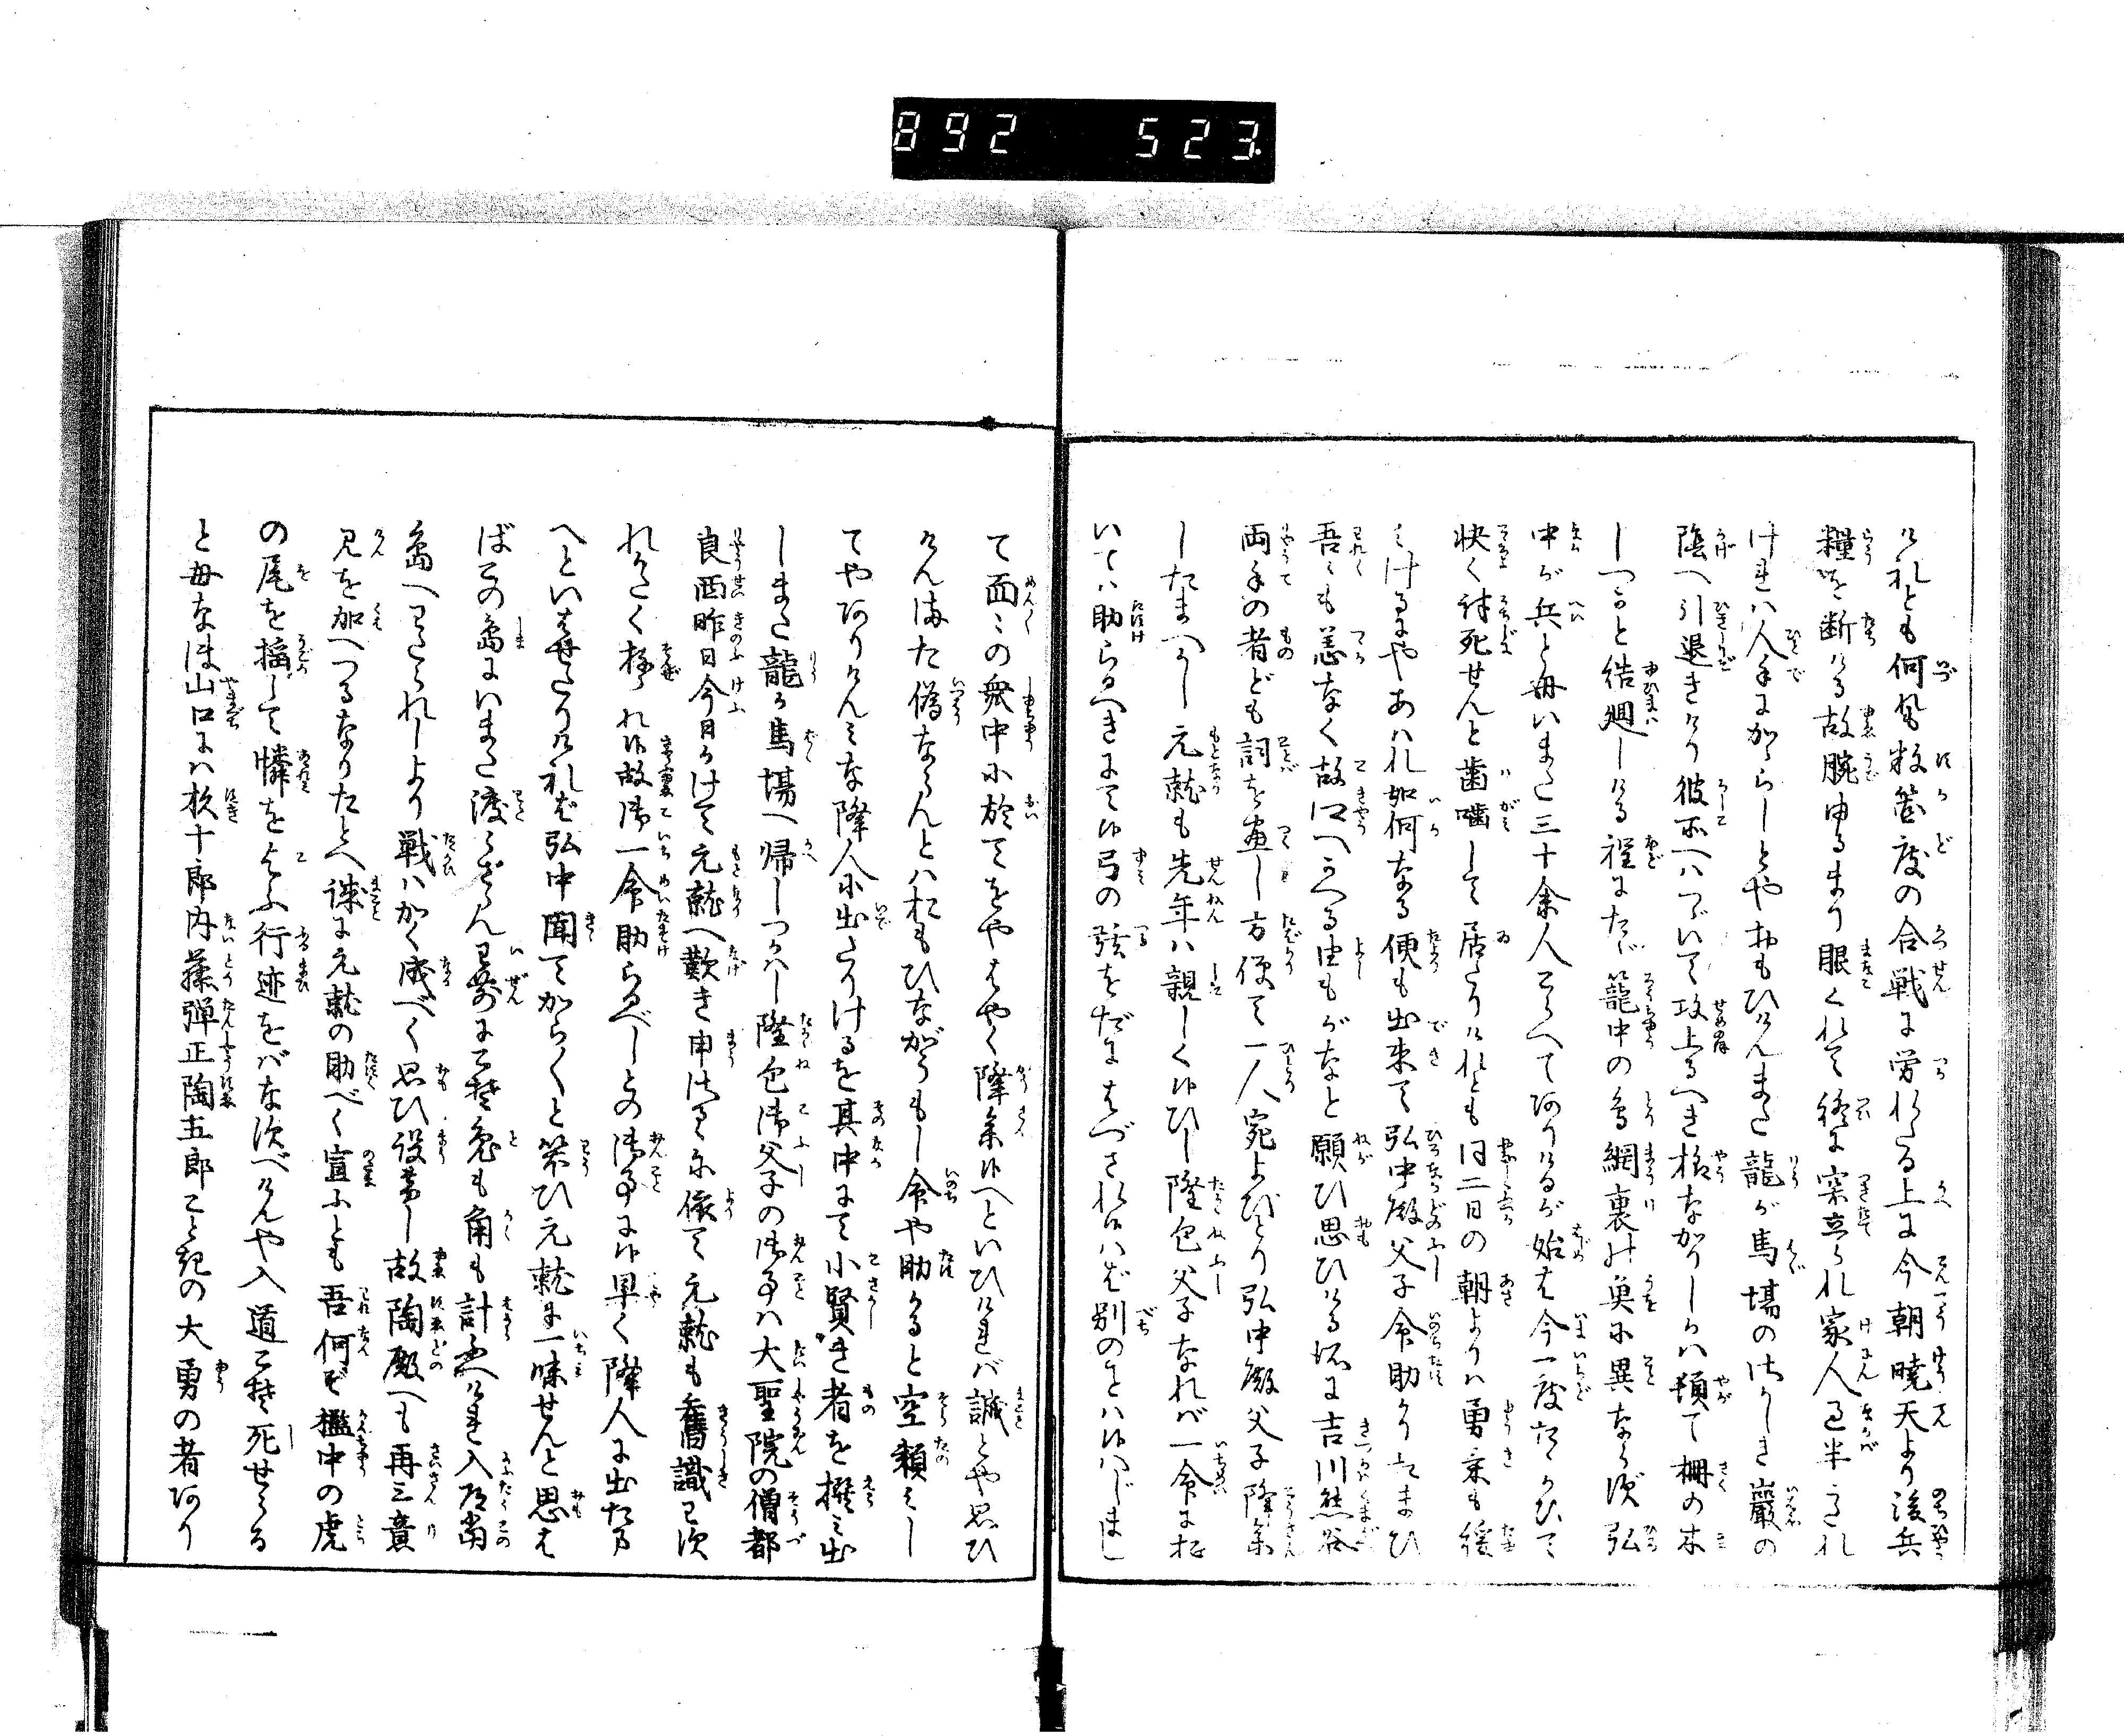 892 523
けれども何れも数箇度の合戦に労れたる上に今朝暁天より後兵
糧を断ける故腕ゆるまり眼くれて終に突立られ家人已半うたれ
ければ人手にかからじとやおもひけんまた龍が馬場のけはしき巌の
陰へ引退きけり彼所へはつづいて攻上るべき様なかりしかば頓て柵の木
しつかと結廻しける程にただ籠中の鳥網裏の魚に異ならず弘
中が兵と毎いまだ三十余人こらへてありけるが始は今一度たたかひて
快く討死せんと歯噛して居たりけれども同二日の朝よりは勇気も緩
みけるにやあはれ如何なる便も出来て弘中殿父子命助かりたまひ
吾々も恙なく故郷へかへる由もがなと願ひ思ひける所に吉川熊谷
両手の者ども詞を尽し方便て一人宛よびとり弘中殿父子降参
したまへかし元就も先年は親しく候ひし隆包父子なれば一命に於
いては助らるべきにて候弓の弦をだにはづされ候はば別のことは候はじまし
て面々の衆中に於てをやはやく降参候へといひければ誠とや思ひ
けんまた偽ならんとはおもひながらもし命や助かると空頼みし
てやありけんみな降人に出たりけるを其中にて小賢き者を撰み出
しまた龍が馬場へ帰しつかはし隆包御父子の御事は大聖院の僧都
良西昨日今日かけて元就へ歎き申さるるに依て元就も舊識わす
れがたく存ぜられ候故御一命助らるべしとの御事に候早く降人に出たま
へといはせたりければ弘中聞てからからと笑ひ元就に一味せんと思は
ばこの島にいまだ渡らざらん已前にこそ兎も角も計るべけれ入道当
島へわたられしより戦はかく成べく思ひ設し故陶殿へも再三意
見を加へつるなりたとへ誠に元就の助べく宣ふとも吾何ぞ檻中の虎
の尾を揺して憐をこふ行迹をばなすべけんや入道こそ死せらる
と毎なほ山口には杉十郎内藤弾正陶五郎こと記の大勇の者あり